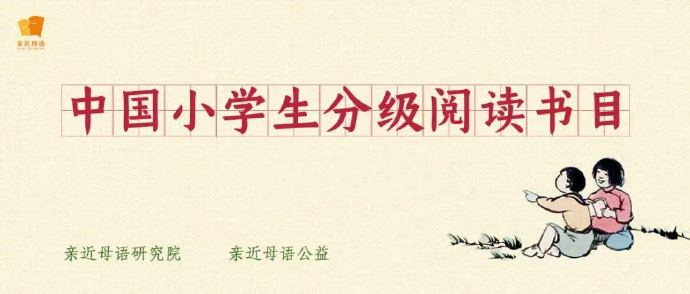 亲近母语
中国小学生分级阅读书目
亲近母语研究院 亲近母语公益